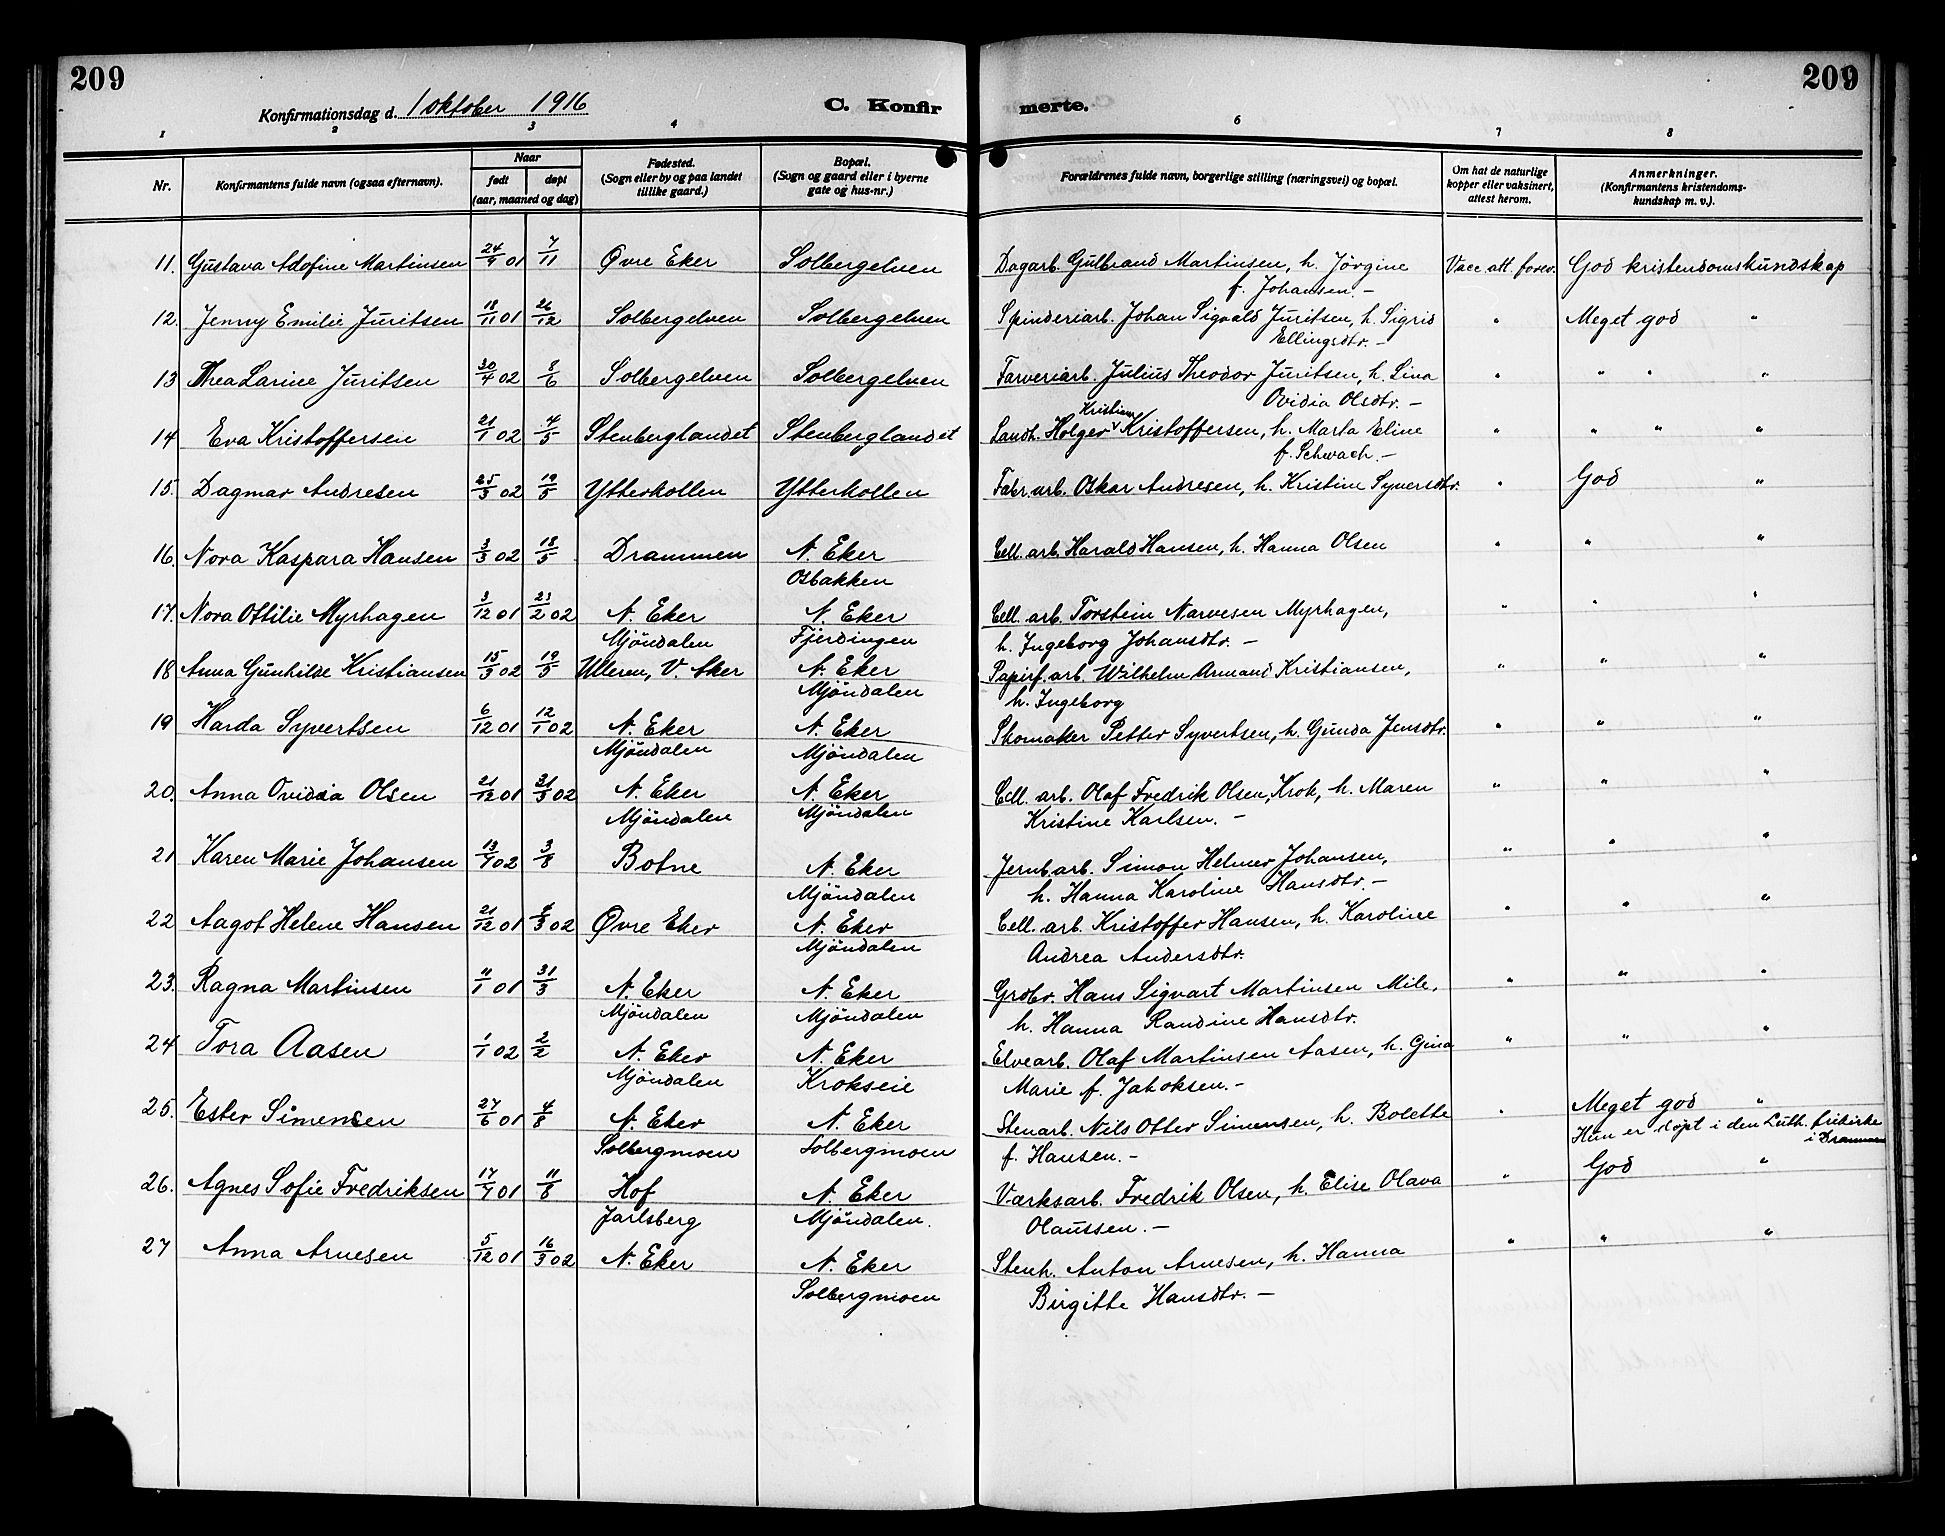 209
209
Konfirmationsdag d. 1 oktober 1916
C. Konfir
merte.
1 2 3 4 6 7 8
Nr.
Konfirmantens fulde navn (ogsaa efternavn).
Naar
født døpt
(aar, maaned og dag)
Fødested.
(Sogn eller by og paa landet
tillike gaard.)
Bopæl.
(Sogn og gaard eller i byerne
gate og hus-nr.)
Forældrenes fulde navn, borgerlige stilling (næringsvei) og bopæl.
Om hat de naturlige
kopper eller vaksinert,
attest herom.
Anmerkninger.
(Konfirmantens kristendoms-
kundskap m. v.).
11. Gustava Adofine Martinsen 24/9 01 7/11 Øvre Eker Solbergelven Dagarb. Gulbrand Martinsen, h. Jörgine Vacc. att. forev. God kristendomskundskap
f. Johansen. —
12. Jenny Emilie Juritsen 18/11 01 26/12 Solbergelven Solbergelven Spinderiarb. Johan Sigvald Juritsen, h. Sigrid " Meget god "
Ellingsdtr. —
13 Thea Larine Juritsen 30/4 02 8/6 Solbergelven Solbergelven Farveriarb. Julius Theodor Juritsen, h. Lina " " " "
Ovidia Olsdtr. —
Kristian
14 Eva Kristoffersen 21/1 02 4/5 Stenberglandet Stenberglandet Landh. Holger Kristoffersen, h. Marta Eline " " " "
f. Schwach. —
15. Dagmar Andresen 25/3 02 19/5 Ytterkollen Ytterkollen Fabr. arb. Oskar Andresen, h. Kristine Syversdtr. " God "
16. Nora Kaspara Hansen 3/3 02 18/5 Drammen N. Eker Cell. arb. Harald Hansen, h. Hanna Olsen " " "
Osbakken
17. Nora Ottilie Myrhagen 3/12 01 23/2 02 N. Eker N. Eker Cell. arb. Torstein Narvesen Myrhagen, " " "
Mjöndalen Fjerdingen h. Ingeborg Johansdtr. —
18 Anna Gunhilde Kristiansen 15/3 02 19/5 Ulleren, V. Aker N. Eker Papirf. arb. Wilhelm Armand Kristiansen, " " "
Mjöndalen h. Ingeborg
19 Harda Syvertsen 6/12 01 12/1 02 N. Eker N. Eker Skomaker Petter Syvertsen, h. Gunda Jensdtr. " " "
Mjöndalen Mjöndalen
20. Anna Ovidia Olsen 21/12 01 31/3 02 N. Eker N. Eker Cell. arb. Olaf Fredrik Olsen, Krok, h. Maren " " "
Mjöndalen Mjöndalen Kristine Karlsen. —
21 Karen Marie Johansen 13/7 02 3/8 Botne N. Eker Jernb. arb. Simon Helmer Johansen, " " "
Mjöndalen h. Hanna Karoline Hansdtr. —
22 Aagot Helene Hansen 21/12 01 9/3 02 Øvre Eker N. Eker Cell. arb. Kristoffer Hansen, h. Karoline " " "
Mjöndalen Andrea Andersdtr.
23. Ragna Martinsen 11/1 01 31/3 N. Eker N. Eker Grdbr. Hans Sigvart Martinsen Mile, " " "
Mjöndalen Mjöndalen h. Hanna Randine Hansdtr.
24 Tora Aasen 1/1 02 2/2 N. Eker N. Eker Elvearb. Olaf Martinsen Aasen, h. Gina " " "
Mjöndalen Krokseie Marie f. Jakoksen. —
25. Ester Simensen 27/6 01 4/8 N. Eker N. Eker Stenarb. Nils Otter Simensen, h. Bolette " Meget god "
Solbergmoen Solbergmoen f. Hansen. — Hun er døpt i den Luth. frikirke
i Drammen
26. Agnes Sofie Fredriksen 17/7 01 11/8 Hof N. Eker Værksarb. Fredrik Olsen, h. Elise Olava " God "
Jarlsberg Mjöndalen. Olaussen. —
27 Anna Arnesen 5/12 01 16/3 02 N. Eker N. Eker Stenh. Anton Arnesen, h. Hanna " " "
Solbergmoen Birgitte Hansdtr. —